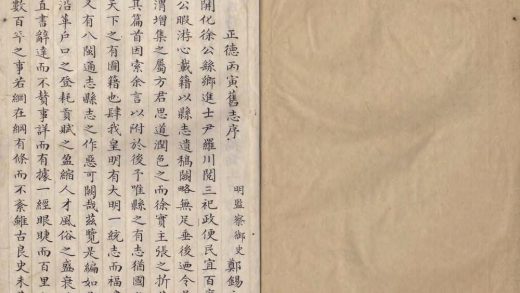 正德丙寅舊志序
明監察御史 鄭錫
開化徐公繇鄉進士尹羅川閱三祀政便民宜百
公暇游心載籍以縣志遺稿闕略無足垂後迺令
渭增集之屬方君思道潤色之而徐實主張之折
其篇首因索余言以附於後予唯縣之有志猶國
天下之有圖籍也肆我皇明有大明一統志而福
又有八閩通志縣志之作惡可闕哉茲覽是編如
沿革戶口之登耗貢賦之盈縮人才風俗之盛衰
直書辭達而不贅事詳而有據一經眼睫而百里
數百年之事若綱在綱有條而不紊雖古良史未